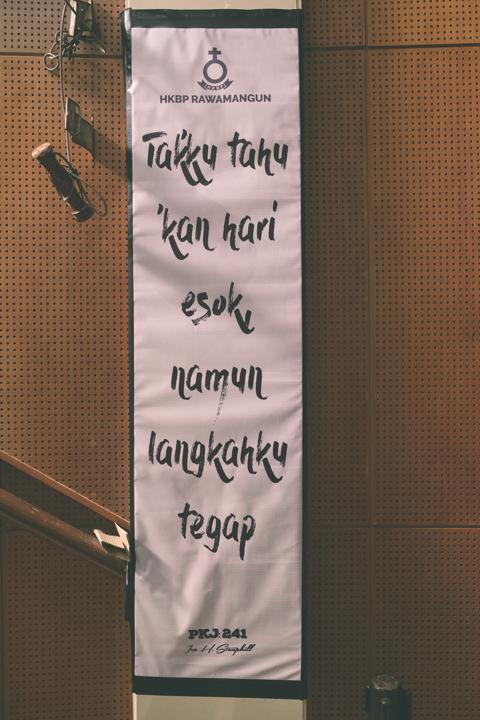 HKBP
HKBP RAWAMANGUN
Tak'ku tahu
'kan hari
esok,
namun
langkahku
tegap
PKJ: 241
Ira H. Stanphill